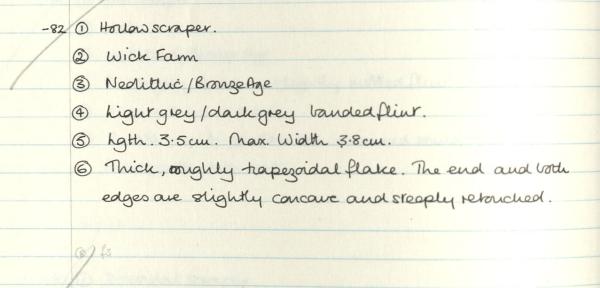 -82 ① Hollow scraper.
② Wick Farm
③ Neolithic/Bronze Age
④ Light grey/dark grey banded flint.
⑤ Lgth. 3.5cm. Max. Width 3.8cm.
⑥ Thick, roughly trapezoidal flake. The end and both
edges are slightly concave and steeply retouched.